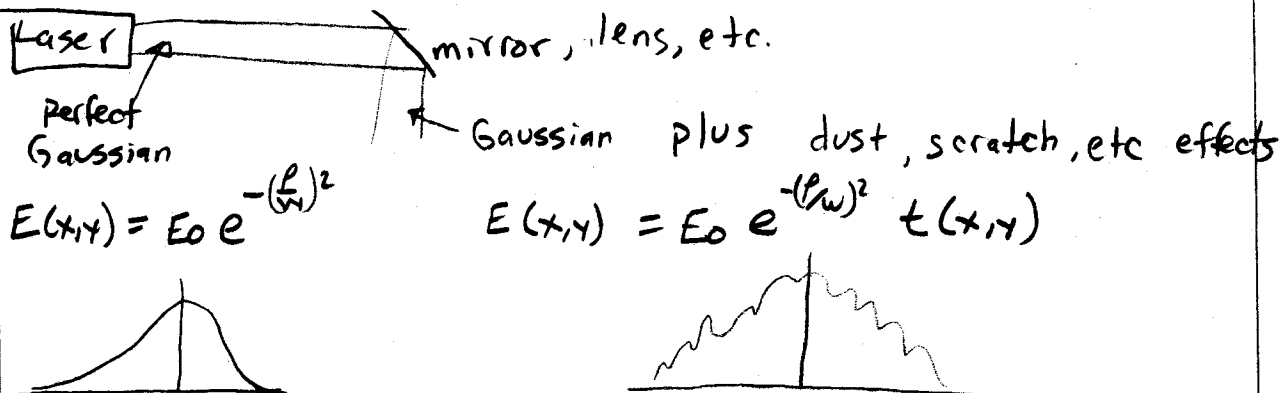 Laser
mirror, lens, etc.
perfect
Gaussian
Gaussian plus dust, scratch, etc effects
E(x,y) = E₀ e^{-(ρ/w)²}
E(x,y) = E₀ e^{-(ρ/w)²} t(x,y)